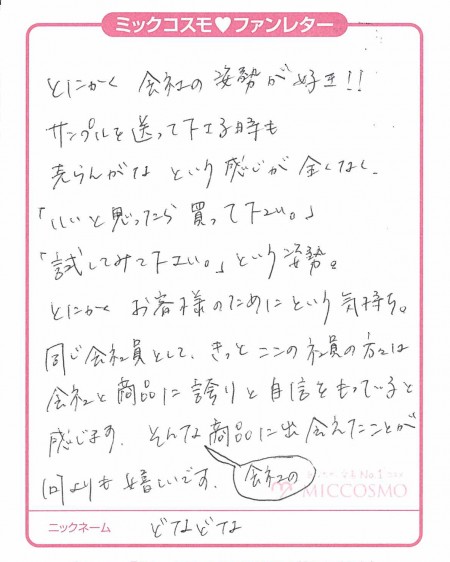 ミックコスモ♥ファンレター
とにかく 会社の 姿勢が 好き!!
サンプルを送って下さる時も
売らんがな という感じが 全くなく、
「いいと思ったら 買って下さい。」
「試してみて下さい。」という姿勢。
とにかく お客様のためにという気持ち。
同じ会社員として、きっと ここの社員の方々は
会社と商品に誇りと自信をもっていると
感じます。そんな商品に出会えたことが
会社の
何よりも嬉しいです。
No.1
MICCOSMO
ニックネーム どなどな